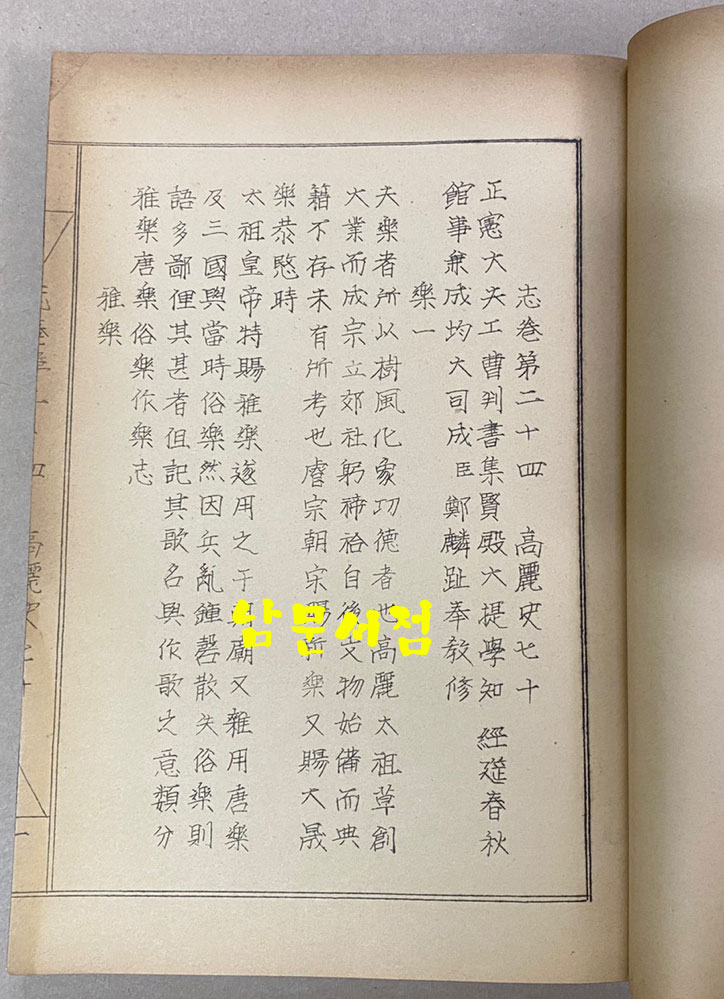 志卷第二十四 高麗史七十
正憲大夫工曹判書集賢殿大提學知 經筵春秋
館事兼成均大司成臣鄭麟趾奉敎修
樂一
夫樂者所以樹風化象功德者也高麗太祖草創
大業而成宗立郊社躬禘祫自後文物始備而典
籍不存未有所考也睿宗朝宗賜所樂又賜大晟
樂恭愍時
太祖皇帝特賜雅樂遂用之于朝廟又雜用唐樂
及三國與當時俗樂然因兵亂鍾磬散失俗樂則
語多鄙俚其甚者但記其歌名與作歌之意類分
雅樂唐樂俗樂作樂志
雅樂
高麗史七十
남문서점